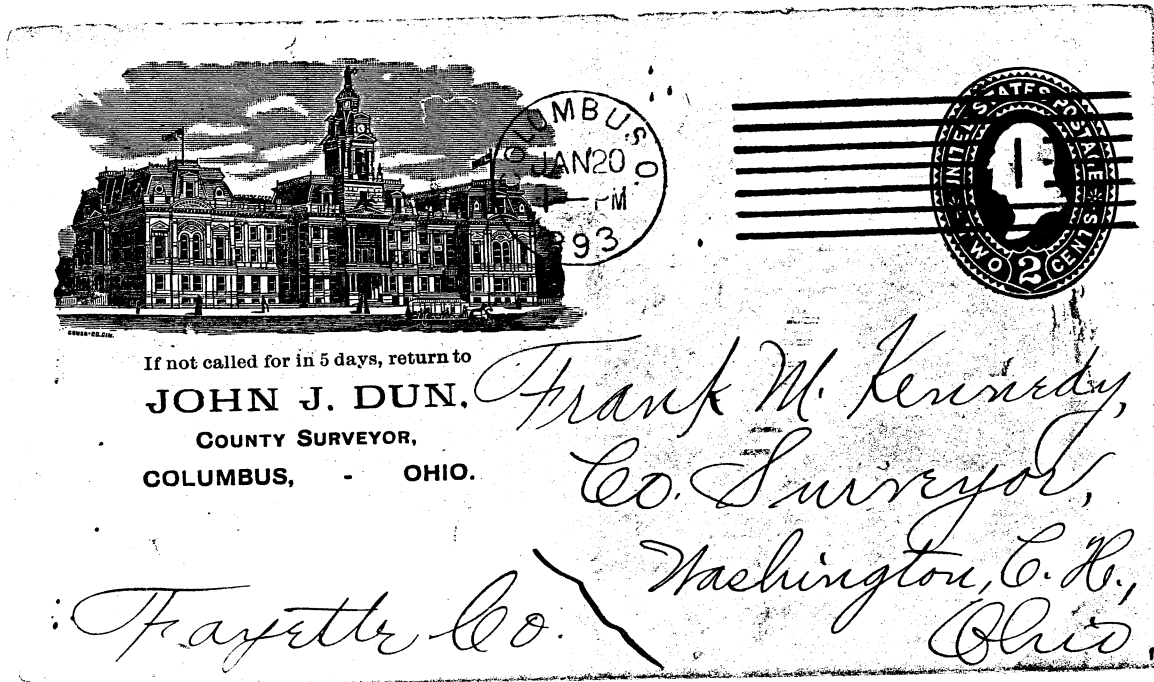 COLUMBUS, O.
JAN 20
1 - PM
1893
UNITED STATES POSTAGE
TWO 2 CENTS
If not called for in 5 days, return to
JOHN J. DUN,
COUNTY SURVEYOR,
COLUMBUS, - OHIO.
Frank M. Kennedy,
Co. Surveyor,
Washington, C. H.,
Ohio.
Fayette Co.